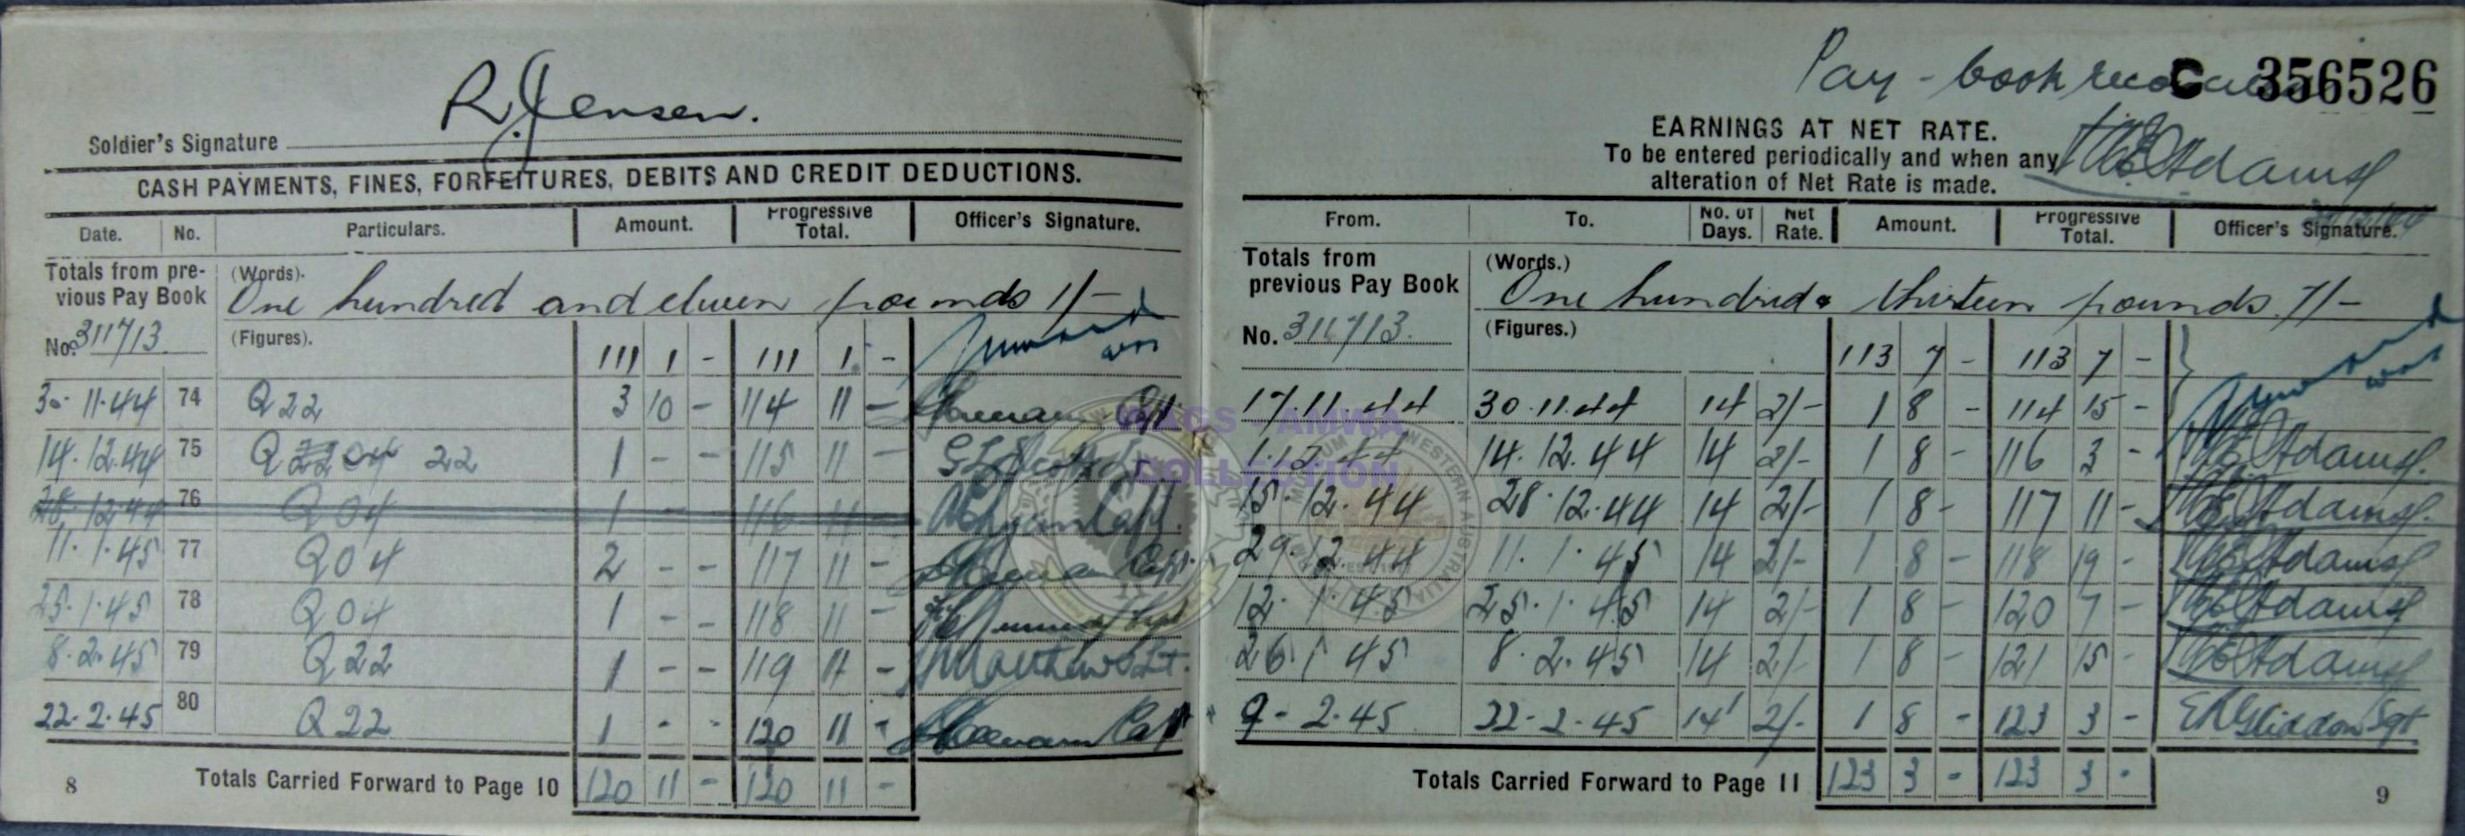 R. Jensen.
Soldier's Signature
CASH PAYMENTS, FINES, FORFEITURES, DEBITS AND CREDIT DEDUCTIONS.
Date. No. Particulars. Amount. Progressive Total. Officer's Signature.
Totals from previous Pay Book (Words).
One hundred and eleven pounds 1/-
No. 311713 (Figures). 111 1 - 111 1 -
30.11.44 74 Q22 3 10 - 114 11 - Capt
14.12.44 75 Q 22 1 - - 115 11 -
28.12.44 76 Q04 1 - 116 11 -
11.1.45 77 Q04 2 - - 117 11 - Capt.
25.1.45 78 Q04 1 - - 118 11 - Capt
8.2.45 79 Q22 1 - - 119 11 - Matthews Lt.
22.2.45 80 Q22 1 - - 120 11 - Capt
8 Totals Carried Forward to Page 10 120 11 - 120 11 -
Pay-book C 356526
EARNINGS AT NET RATE.
To be entered periodically and when any
alteration of Net Rate is made.
Adams
From. To. No. of Days. Net Rate. Amount. Progressive Total. Officer's Signature.
Totals from previous Pay Book (Words.)
One hundred & thirteen pounds 7/-
No. 311713. (Figures.) 113 7 - 113 7 -
17.11.44 30.11.44 14 2/- 1 8 - 114 15 -
1.12.44 14.12.44 14 2/- 1 8 - 116 3 - Adams
15.12.44 28.12.44 14 2/- 1 8 - 117 11 - Adams
29.12.44 11.1.45 14 2/- 1 8 - 118 19 - Adams
12.1.45 25.1.45 14 2/- 1 8 - 120 7 - Adams
26.1.45 8.2.45 14 2/- 1 8 - 121 15 - Adams
9-2.45 22-2-45 14 2/- 1 8 - 123 3 - Gliddon Sgt
Totals Carried Forward to Page 11 123 3 - 123 3 -
9
WAGS - AMWA
COLLECTION